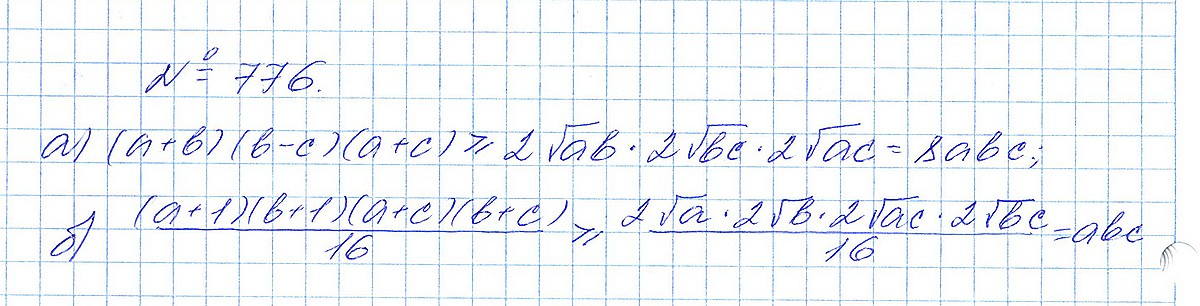 № 776.
а) (a+b)(b-c)(a+c) ≥ 2√ab · 2√bc · 2√ac = 8abc;
б) (a+1)(b+1)(a+c)(b+c)/16 ≥ 2√a · 2√b · 2√ac · 2√bc/16 = abc